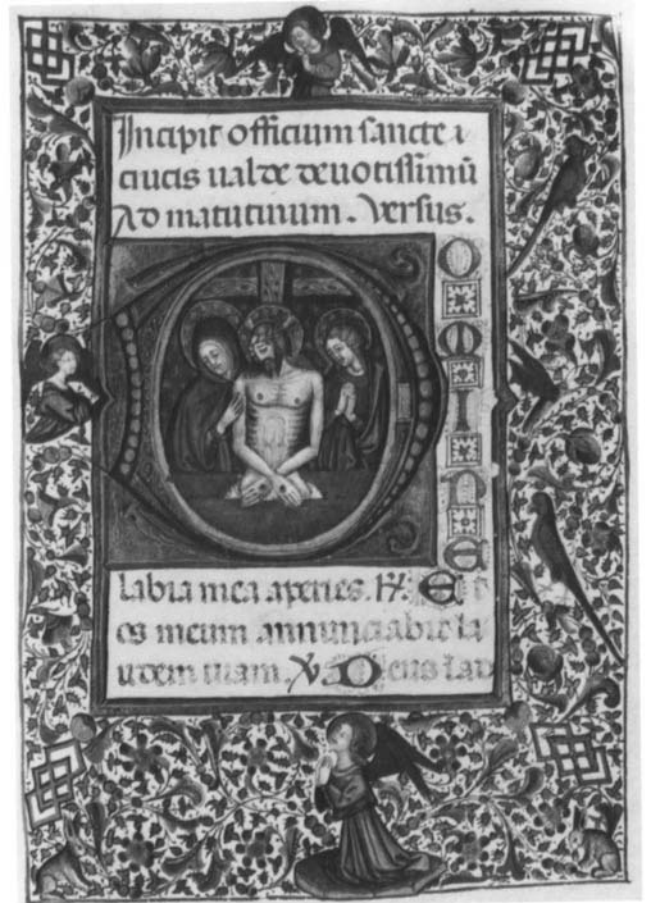 Incipit officium sancte
crucis ualde deuotissimū
Ad matutinum. Versus.
DOMINE
labia mea aperies. R. Et
os meum annunciabit la
udem tuam. V. Deus in ad